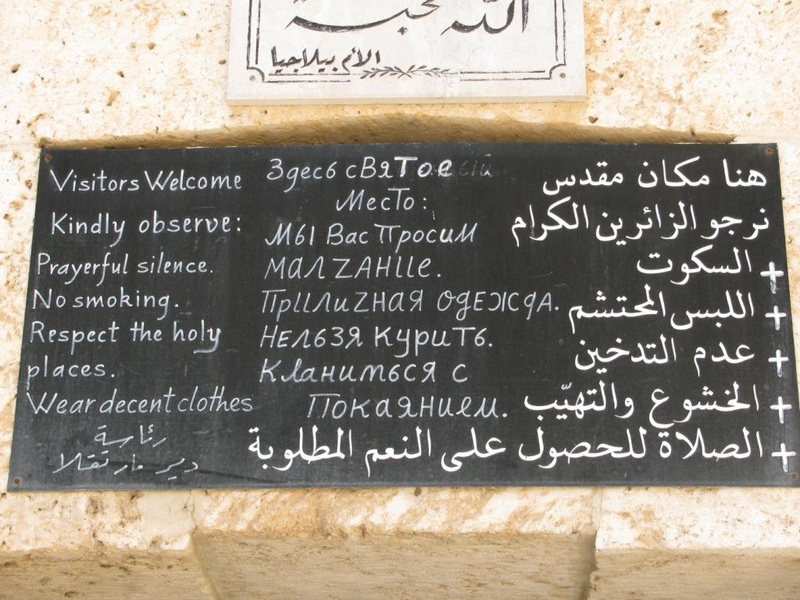 الله محبة
الأم بيلاجيا
Visitors Welcome
Kindly observe:
Prayerful silence.
No smoking.
Respect the holy
places.
Wear decent clothes
رئاسة
دير مار تقلا
Здесь сВятое
Место:
мы Вас Просим
малzание.
Прилиzная одежда.
Нельзя Курить.
Кланиться с
Покаянием.
هنا مكان مقدس
نرجو الزائرين الكرام
+ السكوت
+ اللبس المحتشم
+ عدم التدخين
+ الخشوع والتهيّب
+ الصلاة للحصول على النعم المطلوبة